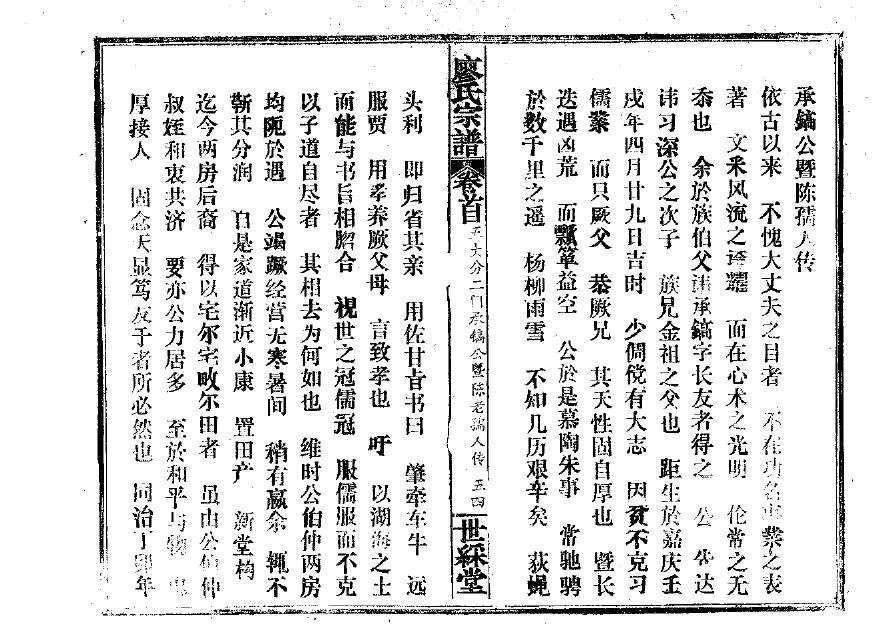 承鎬公暨陈孺人传
依古以来 不愧大丈夫之目者 不在功名事業之表
著 文采风流之 耀 而在心术之光明 伦常之无
忝也 余於族伯父諱承鎬字长友者得之 公 达
讳习深公之次子 族兄金祖之父也 距生於嘉庆壬
戌年四月廿九日吉时 少倜傥有大志 因贫不克习
儒業 而只厥父 恭厥兄 其天性固自厚也 暨长
迭遇凶荒 而瓢簞益空 公於是慕陶朱事 常驰骋
於数千里之遥 杨柳雨雪 不知几历艰辛矣 荻蝇
廖氏宗譜 卷首 五大分二门承鎬公暨陈老孺人传 五四 世綵堂
头利 即归省其亲 用佐甘旨书曰 肇牵车牛 远
服贾 用孝养厥父母 言致孝也 吁 以湖海之士
而能与书旨相脗合 視世之冠儒冠 服儒服而不克
以子道自尽者 其相去为何如也 维时公伯仲两房
均阨於遇 公竭蹶经营无寒暑间 稍有贏余 辄不
靳其分润 自是家道渐近小康 置田产 新堂构
迄今两房后裔 得以宅尔宅畋尔田者 虽由公伯仲
叔姪和衷共济 要亦公力居多 至於和平与物 忠
厚接人 固念天显笃友于者所必然也 同治丁卯年